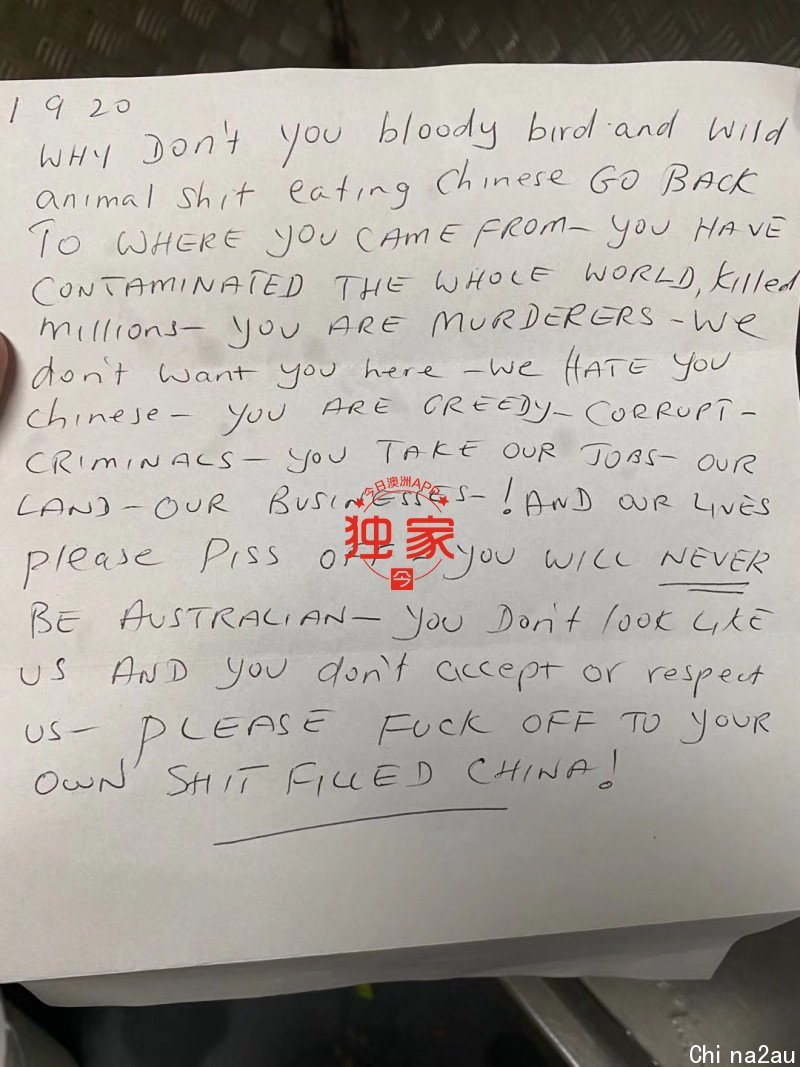 1 9 20
WHY DON't YOU bloody bird and wild
animal shit eating Chinese GO BACK
TO WHERE YOU CAME FROM- YOU HAVE
CONTAMINATED THE WHOLE WORLD, killed
millions- YOU ARE MURDERERS -we
don't want you here -we HATE YOU
Chinese- YOU ARE GREEDY- CORRUPT-
CRIMINALS- YOU TAKE OUR JOBS- OUR
LAND-OUR BUSINESSES-! AND OUR LIVES
今日澳洲APP
独家
今
please PISS OFF - YOU WILL NEVER
BE AUSTRALIAN- YOU DON't look LIKE
US AND YOU don't accept or respect
US- PLEASE FUCK OFF TO YOUR
OWN SHIT FILLED CHINA!
Chi na2au